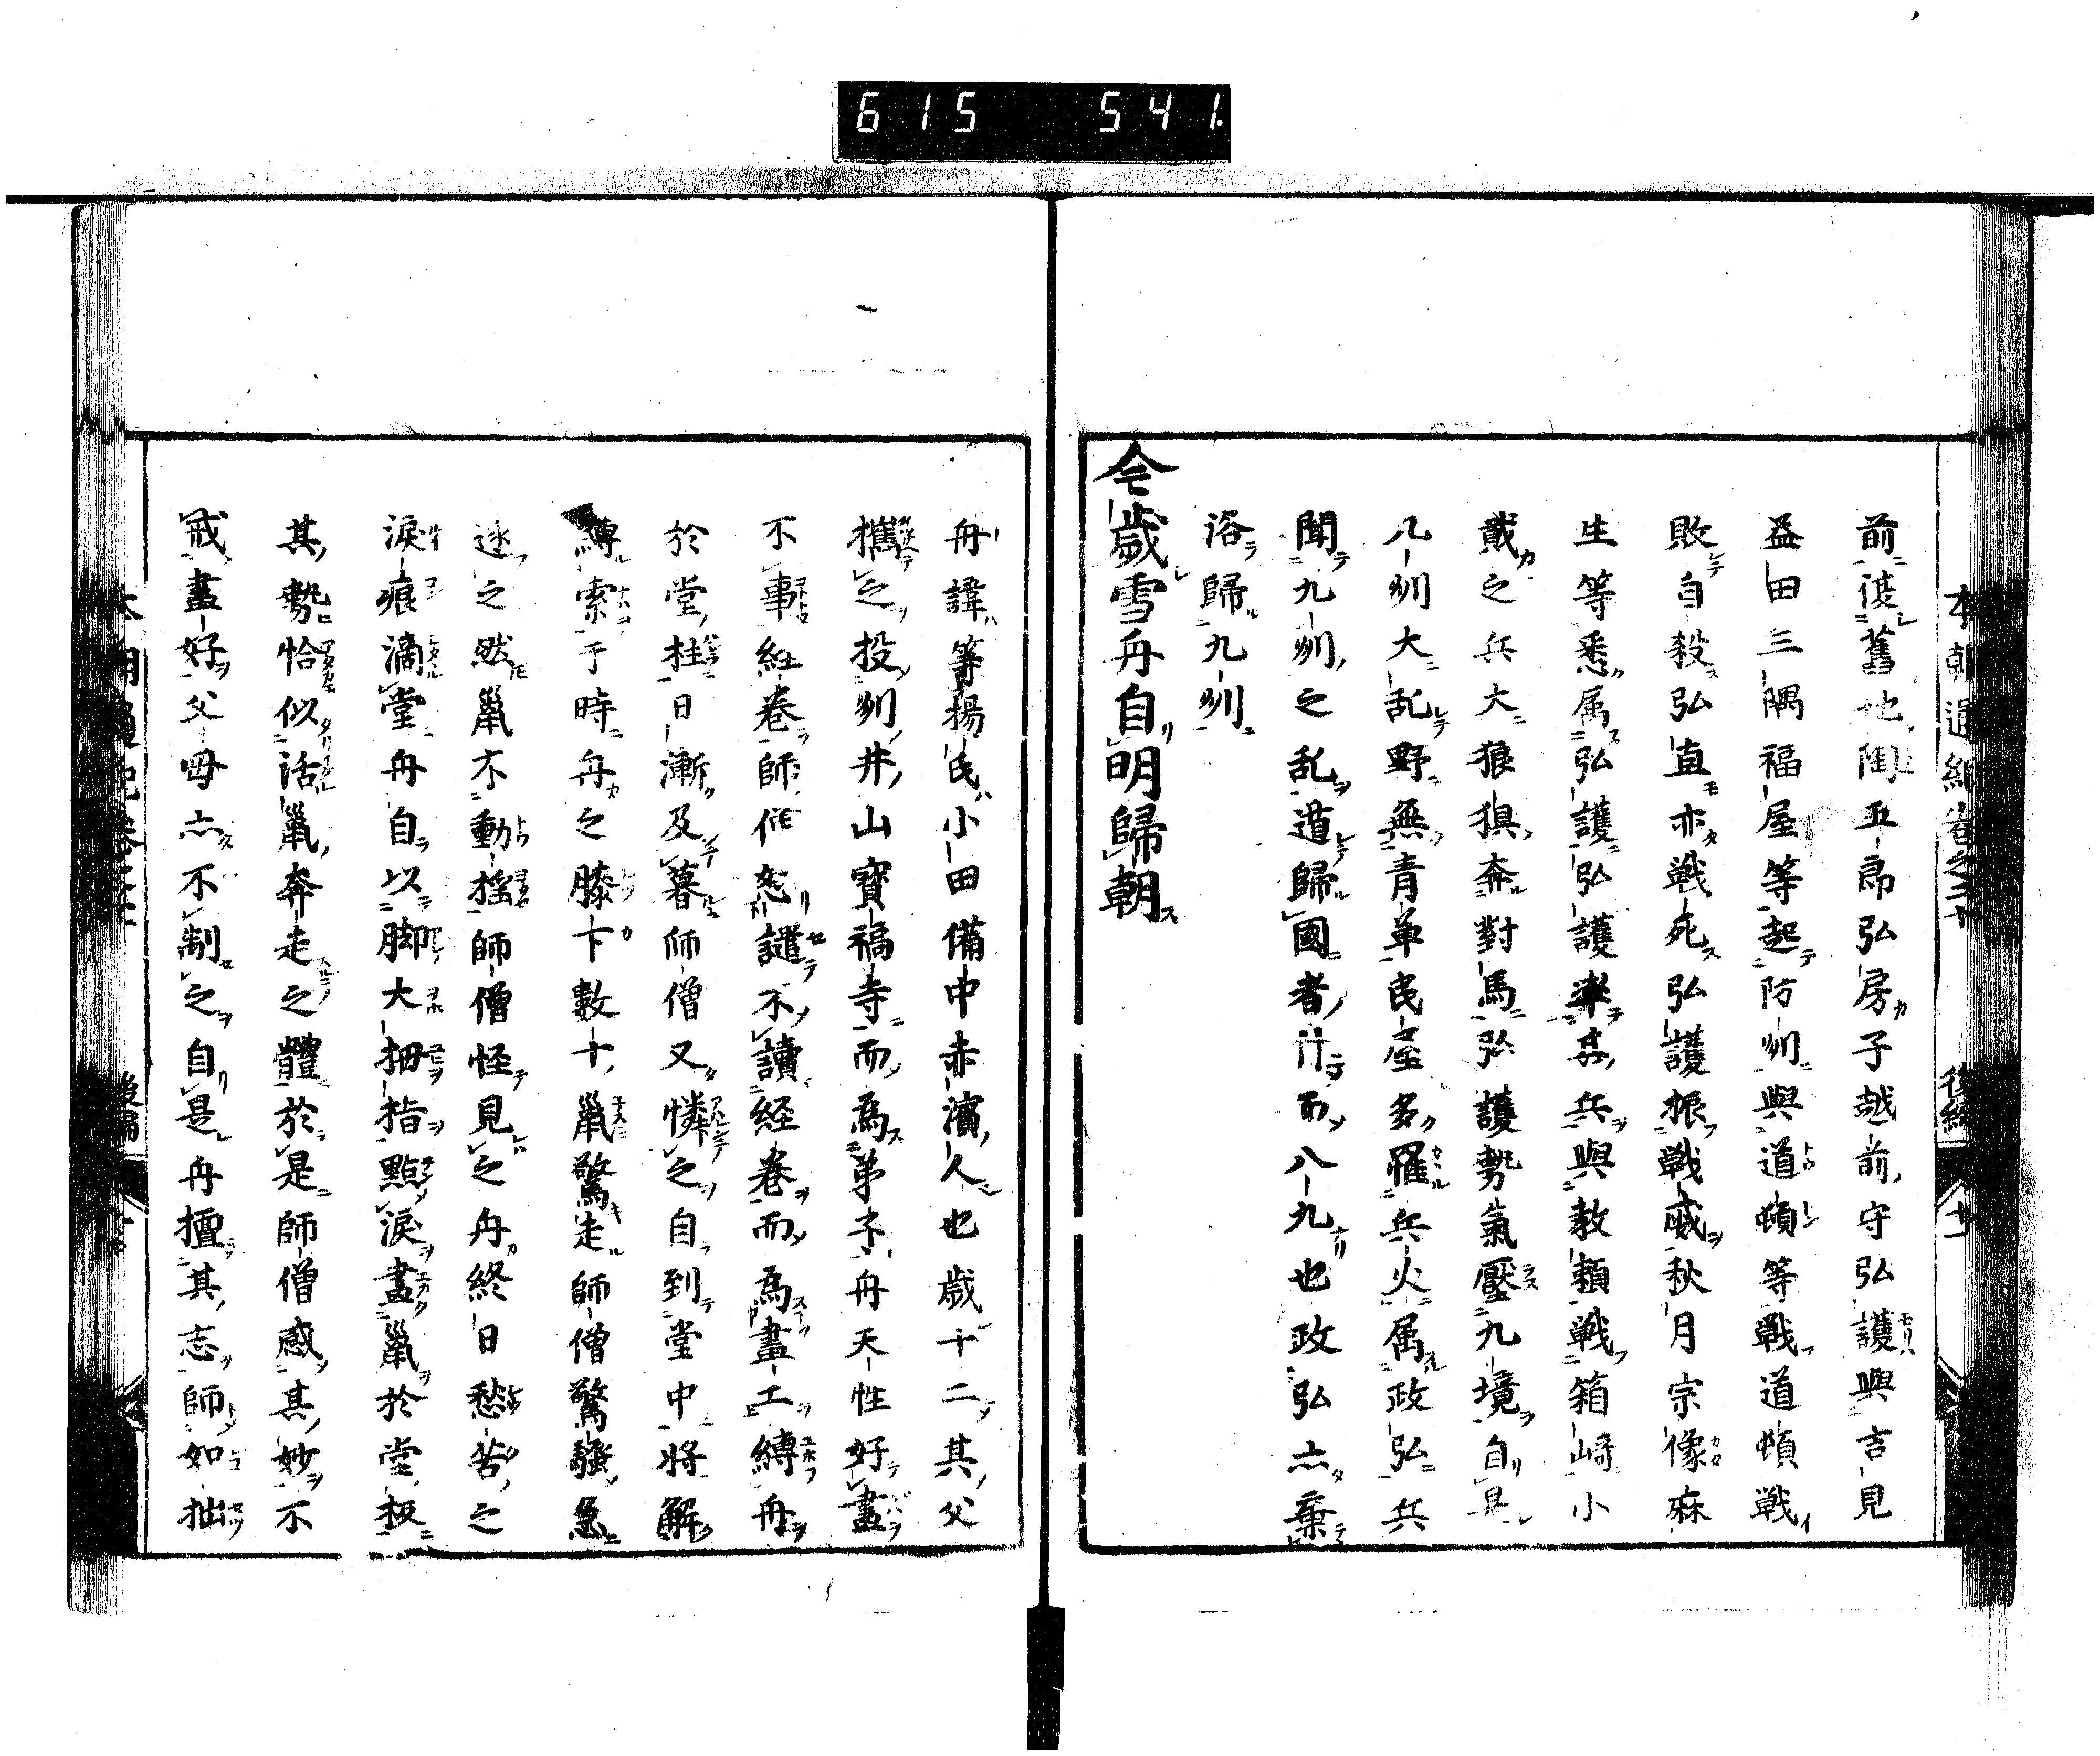 615 541.
本朝通紀卷之二十 後編 十一
前復舊地陶五郎弘房子越前守弘護與吉見
益田三隅福屋等起防州與道頓等戰道頓戰
敗自殺弘直亦戰死弘護振戰威秋月宗像麻
生等悉属弘護弘護率其兵與教頼戰箱崎小
貳之兵大狼狽奔對馬弘護勢氣壓九境自是
九州大乱野無青草民屋多罹兵火属政弘兵
聞九州之乱遁歸國者什而八九也政弘亦棄
洛歸九州
今歳雪舟自明歸朝
舟諱等揚氏小田備中赤濱人也歳十二其父
攜之投州井山寳福寺而為弟子舟天性好畫
不事經卷師僧怒譴不讀経卷而為畫工縛舟
於堂柱日漸及暮師僧又憐之自到堂中将解
縛索于時舟之膝下數十鼠驚走師僧驚騒急
逐之然鼠不動揺師僧怪見之舟終日愁苦之
涙痕滴堂舟自以脚大拇指點涙畫鼠於堂板
其勢恰似活鼠奔走之體於是師僧感其妙不
戒畫好父母亦不制之自是舟擅其志師如拙